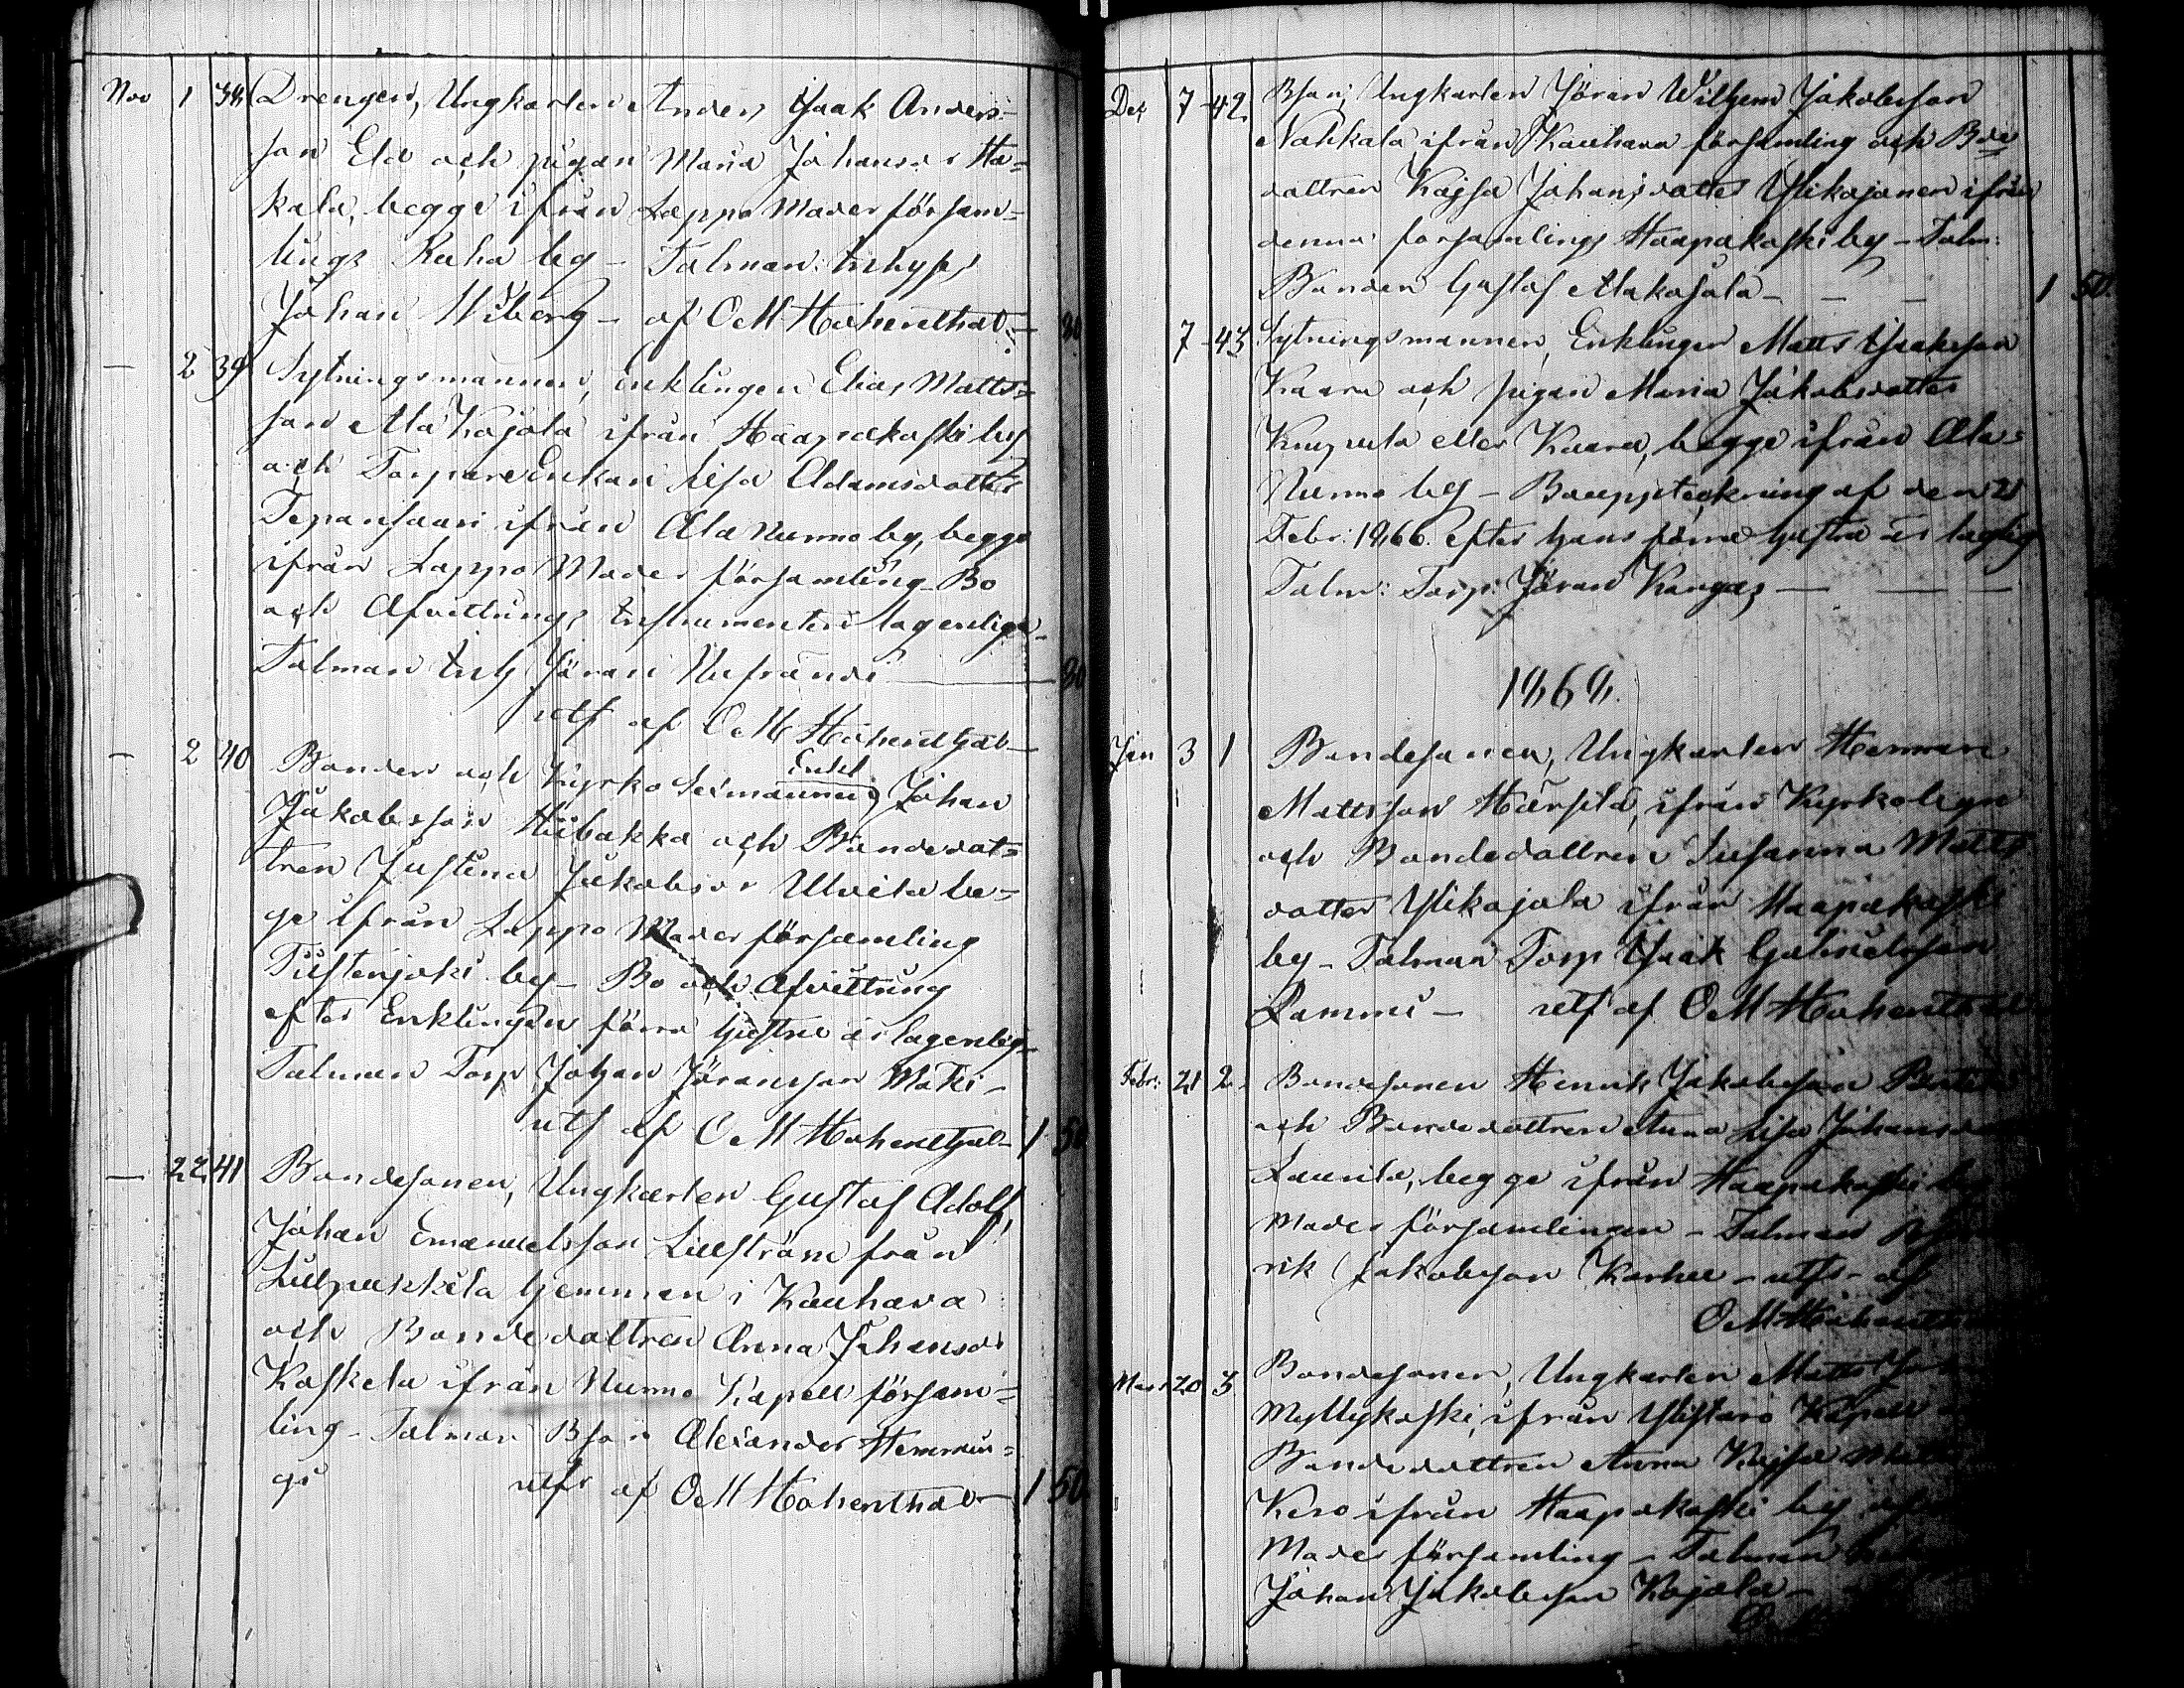 Nov 1 38 Drengen, Ungkarlen Anders Isaak Anders-
son Ela och pigan Maria Johansd:r Ha=
kala, begge ifrån Lappo Moder försam=
lings Ruha by - Talman: Inhyses
Johan Wiberg - af O M Hohenthal. - 80
— 2 39 Sytningsmannen, Enklingen Elias Matts=
son Ala Kojola ifrån Haapakoski by
och Torpare Enkan Lisa Adamsdotter
Tepansaari ifrån Ala Nurmo by, begge
ifrån Lappo Moder församling - Bo
och Afvittrings Instrumenten lagenliga -
Talman Inh Jöran
utf af O M Hohenthal -
— 2 40 Bonden och Kyrko Sexmannen, Enkl Johan
Jakobsson Hiibakka och Bondedot=
tren Justina Jakobsd:r Ulvila be=
ge ifrån Lappo Moder församling
Tiistenjoki by - Bo och Afvittring
efter Enklingens förra hustru är lagenlig -
Talman Torp Johan Jöransson Mäki -
utf af O M Hohenthal - 1 50
— 22 41 Bondesonen, Ungkarlen Gustaf Adolf
Johan Emanuelsson Lillström från
Lillpukkila hemman i Kauhava
och Bondedottren Anna Johansdr
Koskela ifrån Nurmo Kapell försam=
ling - Talman Bson Alexander Hemmin=
gi utfr af O M Hohenthal - 1 50
Dec 7 42. Bson, Ungkarlen Jöran Wilhelm Jakobsson
Nahkala, ifrån Kauhava församling och Bde
dottren Kajsa Johansdotter Ylikojonen ifrån
denna församlings Haapakoski by - Talm:
Bonden Gustaf Alakojola - - - 1 50.
7 43 Sytningsmannen, Enklingen Matts Isaksson
Kaara och pigan Maria Jakobsdotter
eller Kaara, begge ifrån Ala-
Nurmo by - Bouppteckning af den 21
Febr: 1866. efter hans förra hustru är laglig
Talm: Torp: Jöran Kangas - - -
1868.
Jan 3 1 Bondesonen, Ungkarlen Herman
Mattsson Härsilä, ifrån Kyrkobyn
och Bondedottren Susanna Matts
dotter Ylikojola ifrån Haapakoski
by - Talman Torp Isaak Gabrielsson
Lammi - utf af O M Hohenthal
Febr: 21 2. Bondesonen Henrik Jakobsson
och Bondedottren Anna Lisa Johansd
Laurila, begge ifrån Haapakoski
Moder församlingen - Talman
rik Jakobsson Karhu - utfr - af
O M Hohenth
Mars 20 3 Bondesonen, Ungkarlen Matts
Myllykoski, ifrån Ylistaro Kapell
Bondedottren Anna Kajsa
Kero ifrån Haapakoski by
Moder församling - Talman
Johan Jakobsson Kojola -